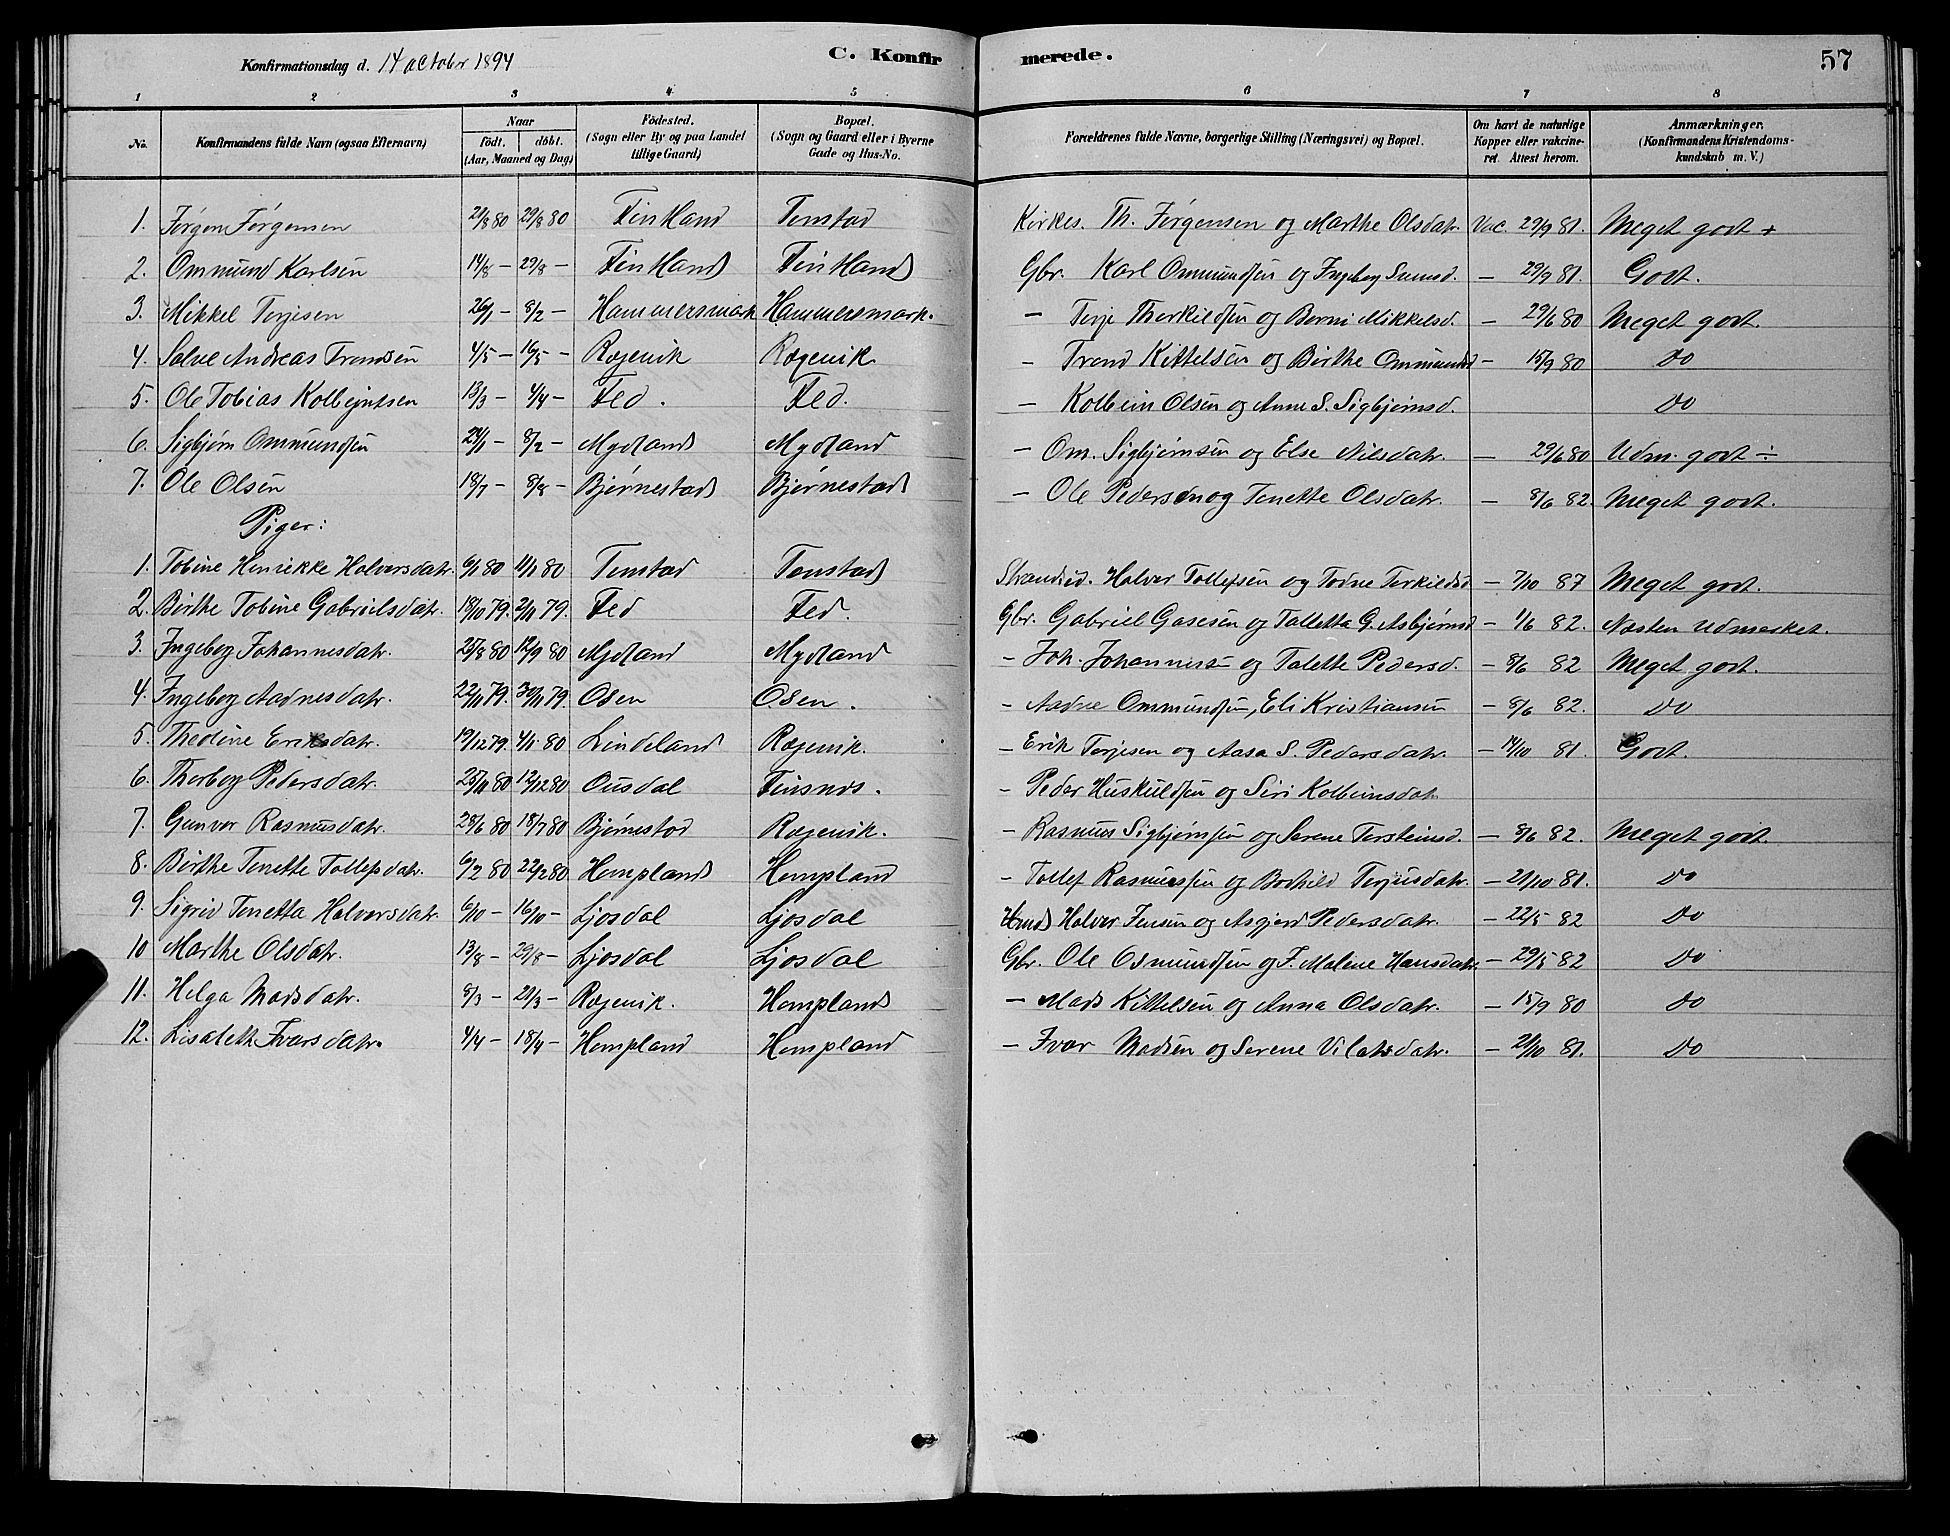 Konfirmationsdag d. 14 October 1894 C. Konfirmerede. 57
1 2 3 4 5 6 7 8
No. Konfirmandens fulde Navn (ogsaa Efternavn) Naar födt. döbt. (Aar, Maaned og Dag) Födested. (Sogn eller By og paa Landet tillige Gaard) Bopæl. (Sogn og Gaard eller i Byerne Gade og Hus-No. Forældrenes fulde Navne, borgerlige Stilling (Næringsvei) og Bopæl. Om havt de naturlige Kopper eller vakcineret. Attest herom. Anmærkninger. (Konfirmandens Kristendomskundskab m. V.)
1. Jørgen Jørgensen 21/8 80 29/8 80 Fintland Tonstad Kirkes. Th. Jørgensen og Marthe Olsdatr. Vac. 29/9 81. Meget godt +
2. Ommund Karlsen 14/8 — 29/8 — Fintland Fintland Gbr. Karl Ommundsen og Ingeborg Svensd. — 29/9 81. Godt.
3. Mikkel Terjesen 26/1 — 8/2 — Hammersmark Hammersmark. — Terje Therkildsen og Berni Mikkelsd. — 29/6 80 Meget godt.
4. Salve Andreas Trondsen 4/5 — 16/5 — Røgevik Røgevik — Trond Kittelsen og Birthe Ommundsd — 15/9 80 Do
5. Ole Tobias Kolbeintsen 13/3 — 4/4 — Fed. Fed. — Kolbein Olsen og Anne S. Sigbjørnsd. Do
6. Sigbjørn Ommundsen 24/1 — 8/2 — Mydland Mydland — Om. Sigbjørnsen og Else Nilsdatr. — 29/6 80 Udm. godt ÷
7. Ole Olsen 18/7 — 8/8 — Bjørnestad Bjørnestad — Ole Pedersen og Tonette Olsdatr. — 8/6 82. Meget godt.
Piger:
1. Tobine Henrikke Halversdatr. 6/1 80 11/1 80 Tonstad Tonstad Strandsid. Halver Tollefsen og Todne Terkildsd — 7/10 87 Meget godt.
2. Birthe Tobine Gabrielsdatr. 18/10 79. 2/11 79. Fed Fed. Gbr. Gabriel Gasesen og Talletta G. Asbjørnsd — 1/6 82. Næsten Udmerket.
3. Ingeborg Johannesdatr. 23/8 80 12/9 80 Mydland Mydland — Joh. Johannesen og Talette Pedersd. — 8/6 82 Meget godt.
4. Ingeborg Aadnesdatr. 22/11 79. 30/11 79. Osen Osen. — Aadne Ommundsen, Eli Kristiansen — 8/6 82. Do
5. Thedine Eriksdatr. 19/12 79. 4/1 80 Lindeland Røgevik. — Erik Terjesen og Aasa S. Pedersdatr. — 14/10 81. Godt.
6. Thorborg Pedersdatr. 25/11 80 12/12 80 Ousdal Finsnes. — Peder Huskuldsen og Siri Kolbeinsdatr
7. Gunvor Rasmusdatr. 28/6 80 18/7 80 Bjørnestad Røgevik. — Rasmus Sigbjørnsen og Serene Torsteinsd. — 8/6 82. Meget godt.
8. Birthe Tonette Tollefsdatr. 6/2 80 22/2 80 Hompland Hompland — Tollef Rasmussen og Borhild Terjusdatr. — 21/10 81. Do
9. Sigrid Tonetta Halversdatr. 6/10 — 16/10 — Ljosdal Ljosdal Halver Jensen og Asgjerd Pedersdatr. — 22/5 82 Do
10 Marthe Olsdatr. 13/8 — 29/8 — Ljosdal Ljosdal Gbr. Ole Osmundsen og J. Malene Hansdatr. — 29/5 82 Do
11. Helga Madsdatr. 8/3 — 21/3 — Røgevik. Hompland — Mads Kittelsen og Anna Olsdatr. — 15/9 80 Do
12. Lisabeth Ivarsdatr. 4/4 — 18/4 — Hompland Hompland — Ivar Madsen og Serene Vilatsdatr. — 21/10 81. Do